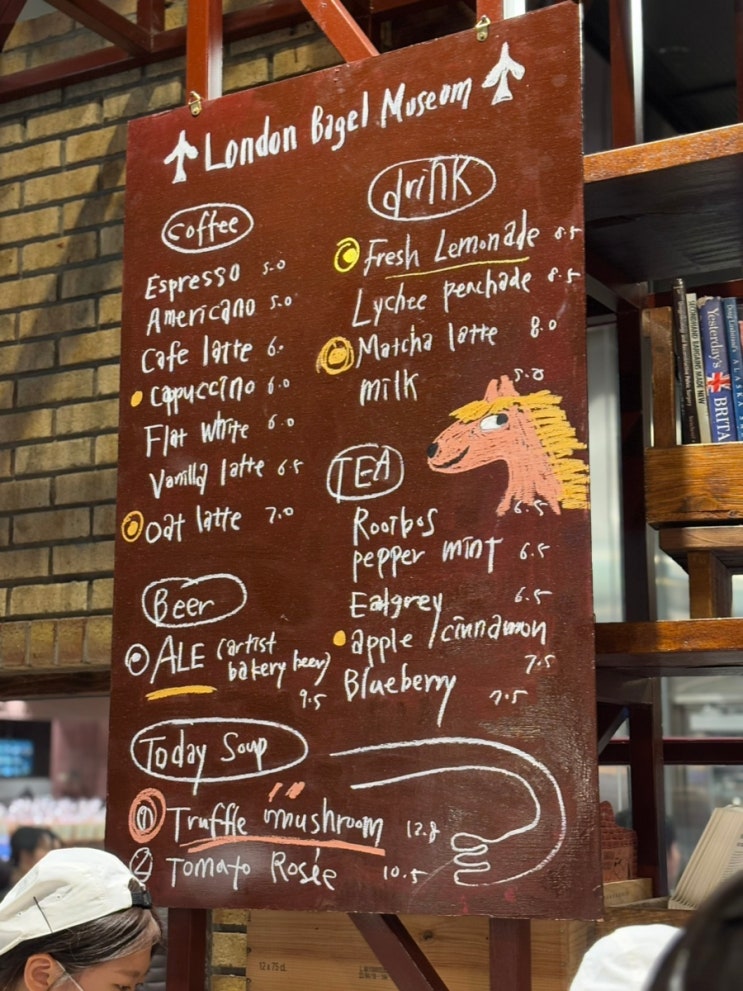 London Bagel Museum
coffee
Espresso 5.0
Americano 5.0
Cafe latte 6.
cappuccino 6.0
Flat white 6.0
Vanilla latte 6.5
oat latte 7.0
Beer
ALE (artist
bakery beer)
9.5
Today Soup
1 Truffle mushroom 12.8
2 Tomato Rosée 10.5
drink
Fresh Lemonade 8.5
Lychee peachade 8.5
Matcha latte 8.0
milk 5.0
TEA
Rooibos 6.5
pepper mint 6.5
Ealgrey 6.5
apple / cinnamon
7.5
Blueberry 7.5
Yesterday's BRITA
12 x 75 cl